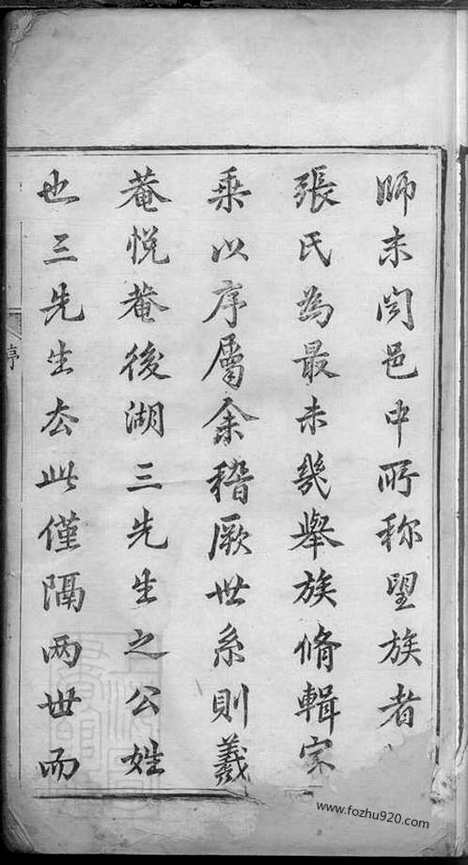 師未閱邑中所称望族者
張氏為最未幾舉族脩輯家
乘以序屬余稽厥世系則羲
菴悅菴後湖三先生之公姓
也三先生去此僅隔两世而
序
www.fozhu920.com